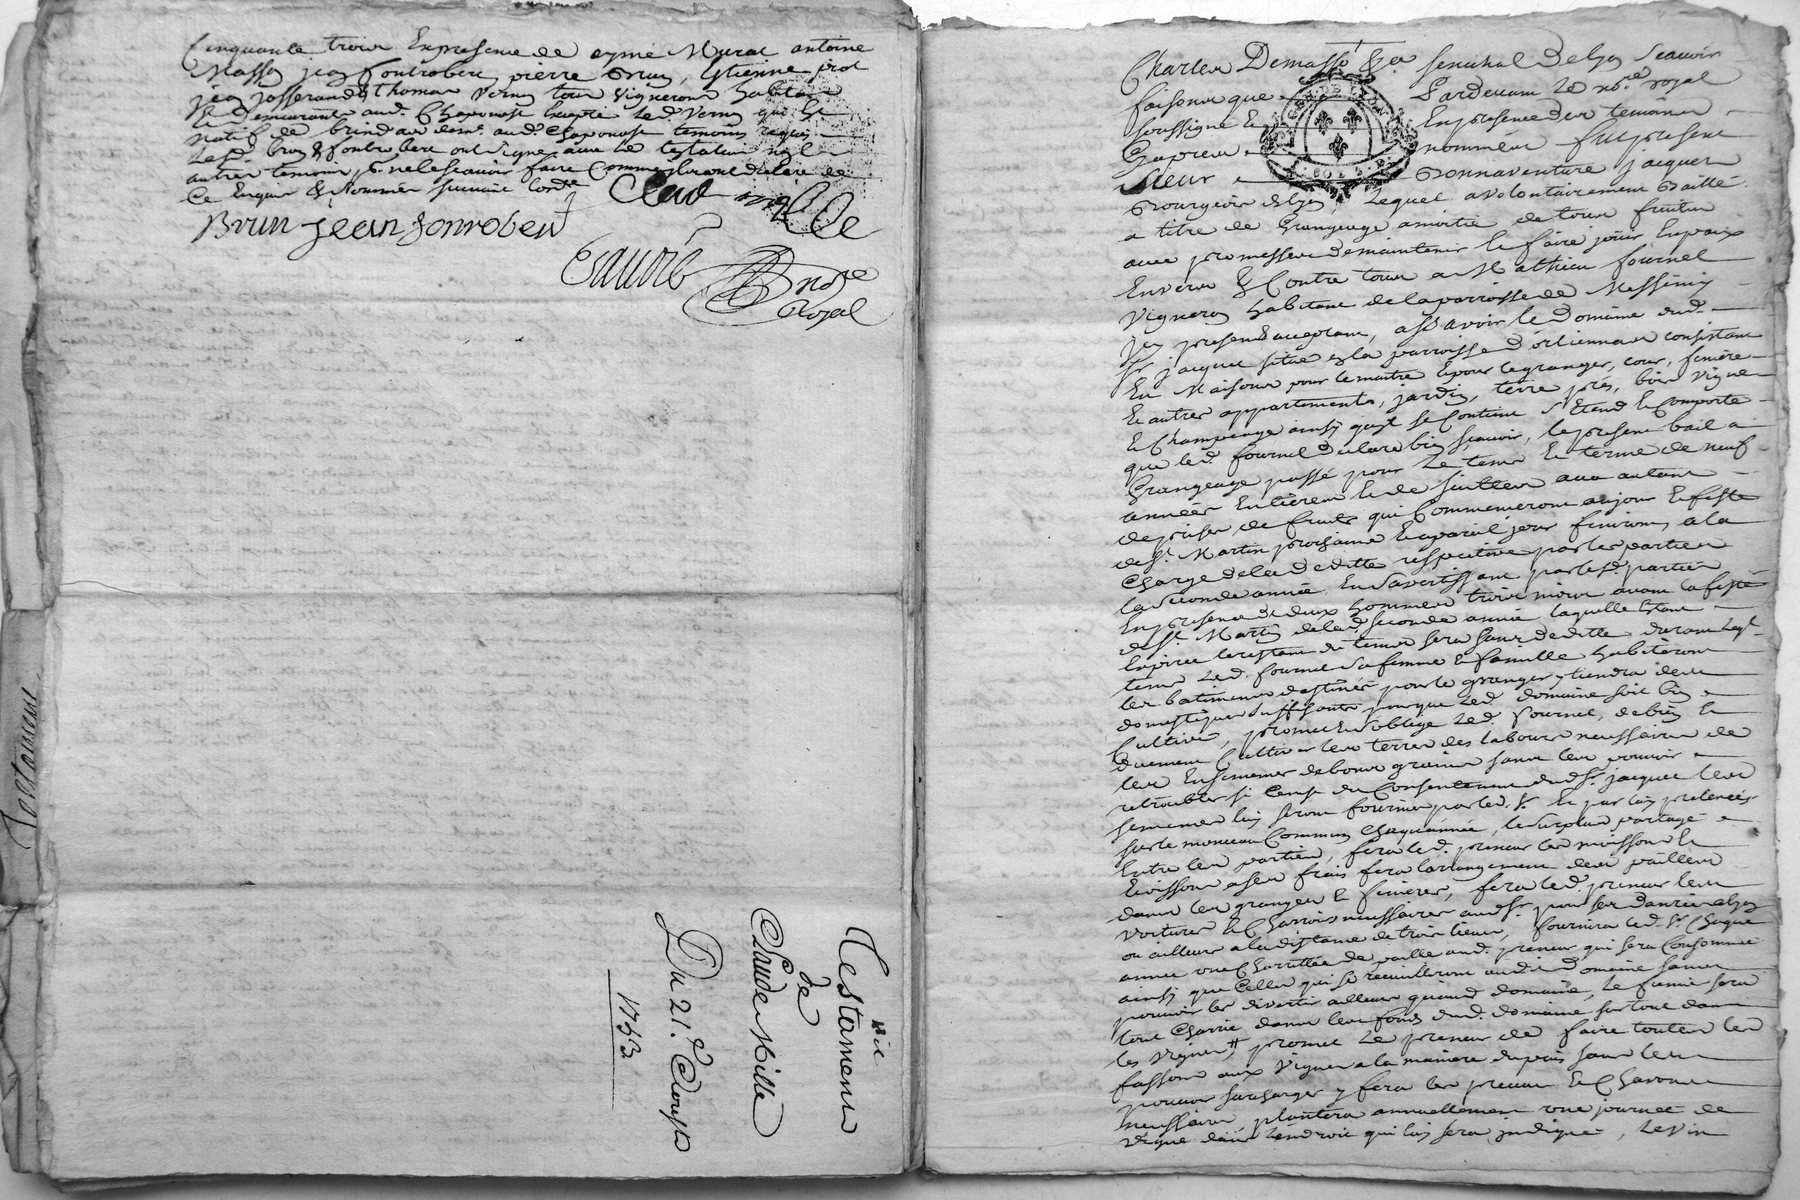 Cinquante trois En presence de aymé Murat antoine
Masson jean fontrobert, pierre Brun, Etienne prot
jean josserand & thomas Verny tous vignerons habitans
& demeurants aud. Chaponost Excepté led. Verny qui Est
natif de brindas dem.t aud. Chaponost temoins requis
Led. brun & fontrobert ont signé avec le testateur non les
autres temoins p. ne le scavoir faire Comme ils ont declaré de
Ce Enquis & sommés suivant lord.ce
Claud mille
Brun jean fonroben
Cauvié
no.re
Royal
Testament
de
Claude Mille
Du 21.e
1753
Testament
Charles Demasso &ca senechal de Lyon scavoir
faisons que Pardevant Le no.re royal
soussigné Et En presence des temoins
Cyapres nommés fut present
Sieur Bonnaventure jacques
Bourgeois de Lyon, Lequel a volontairement Baillé
a titre de Grangeage a moitié de tous fruits
avec promesse de maintenir & faire jouir En paix
Envers & Contre tous a Mathieu fournel
Vigneron habitant de la parroisse de Messimy
Icy present acceptant, assavoir le Domaine dud.
Sr. jacques situé en la parroisse d'orlienas consistant
En Maisons pour le maitre & pour le granger, cour, feniere
& autres appartements, jardin, terre prés, bois vigne
& Champeage ainsy qu'il se Contient S'Etend & Comporte
que led. fournel declare bien scavoir, le present bail a
Grangeage passé pour Le tems & terme de neuf
années Entieres & de suittes aux autant
de prises de fruits qui Commenceront au jour & feste
de St. Martin prochaine & a pareil jour finiront, a la
Charge de la Deditte respective par les parties
la seconde année En s'avertissant par lesd. parties
En presence de deux hommes trois mois avant la feste
de St. Martin de lad. seconde année laquelle Etant
Expirée le restant du tems sera sans deditte durant Leql.
tems Led. fournel sa femme & famille habiteront
les batiments destinés pour le granger y tiendra des
domestiques suffisants pour que Led. domaine soit bien
Cultivé, promet & s'oblige Led. fournel, de bien &
duement Cultiver les terres des labours necessaires de
les Ensemencer de bons grains sans les pouvoir
retroubler si Ce n'est du Consentement dud. Sr. jacques les
semences luy seront fournies par led. Sr. & par luy prelevées
sur le monceau Commun Chaque année, le surplus partagé
Entre les parties, fera led. preneur les moissons &
Ecossons a ses frais fera l'arrangement des pailles
dans les granges & fenieres, fera led. preneur les
voitures & Charrois necessaires aud. Sr. pour ses danrées a Lyon
ou ailleurs a la distance de trois lieues, fournira led. Sr. Chaque
année une Charrettée de paille aud. preneur qui sera Consommée
ainsy que Celles qui se recueilliront aud. Domaine sans
pouvoir les divertir ailleurs qu'aud. domaine, le fumier sera
tout Charrié dans les fonds dud. domaine surtout dans
les vignes, promet Le preneur de faire toutes les
fassons aux Vignes a la maniere du pais sans les
pouvoir surcharger y fera les preuves &
necessaires, plantera annuellement une journée de
vigne dans L'endroit qui luy sera indiqué, Le vin